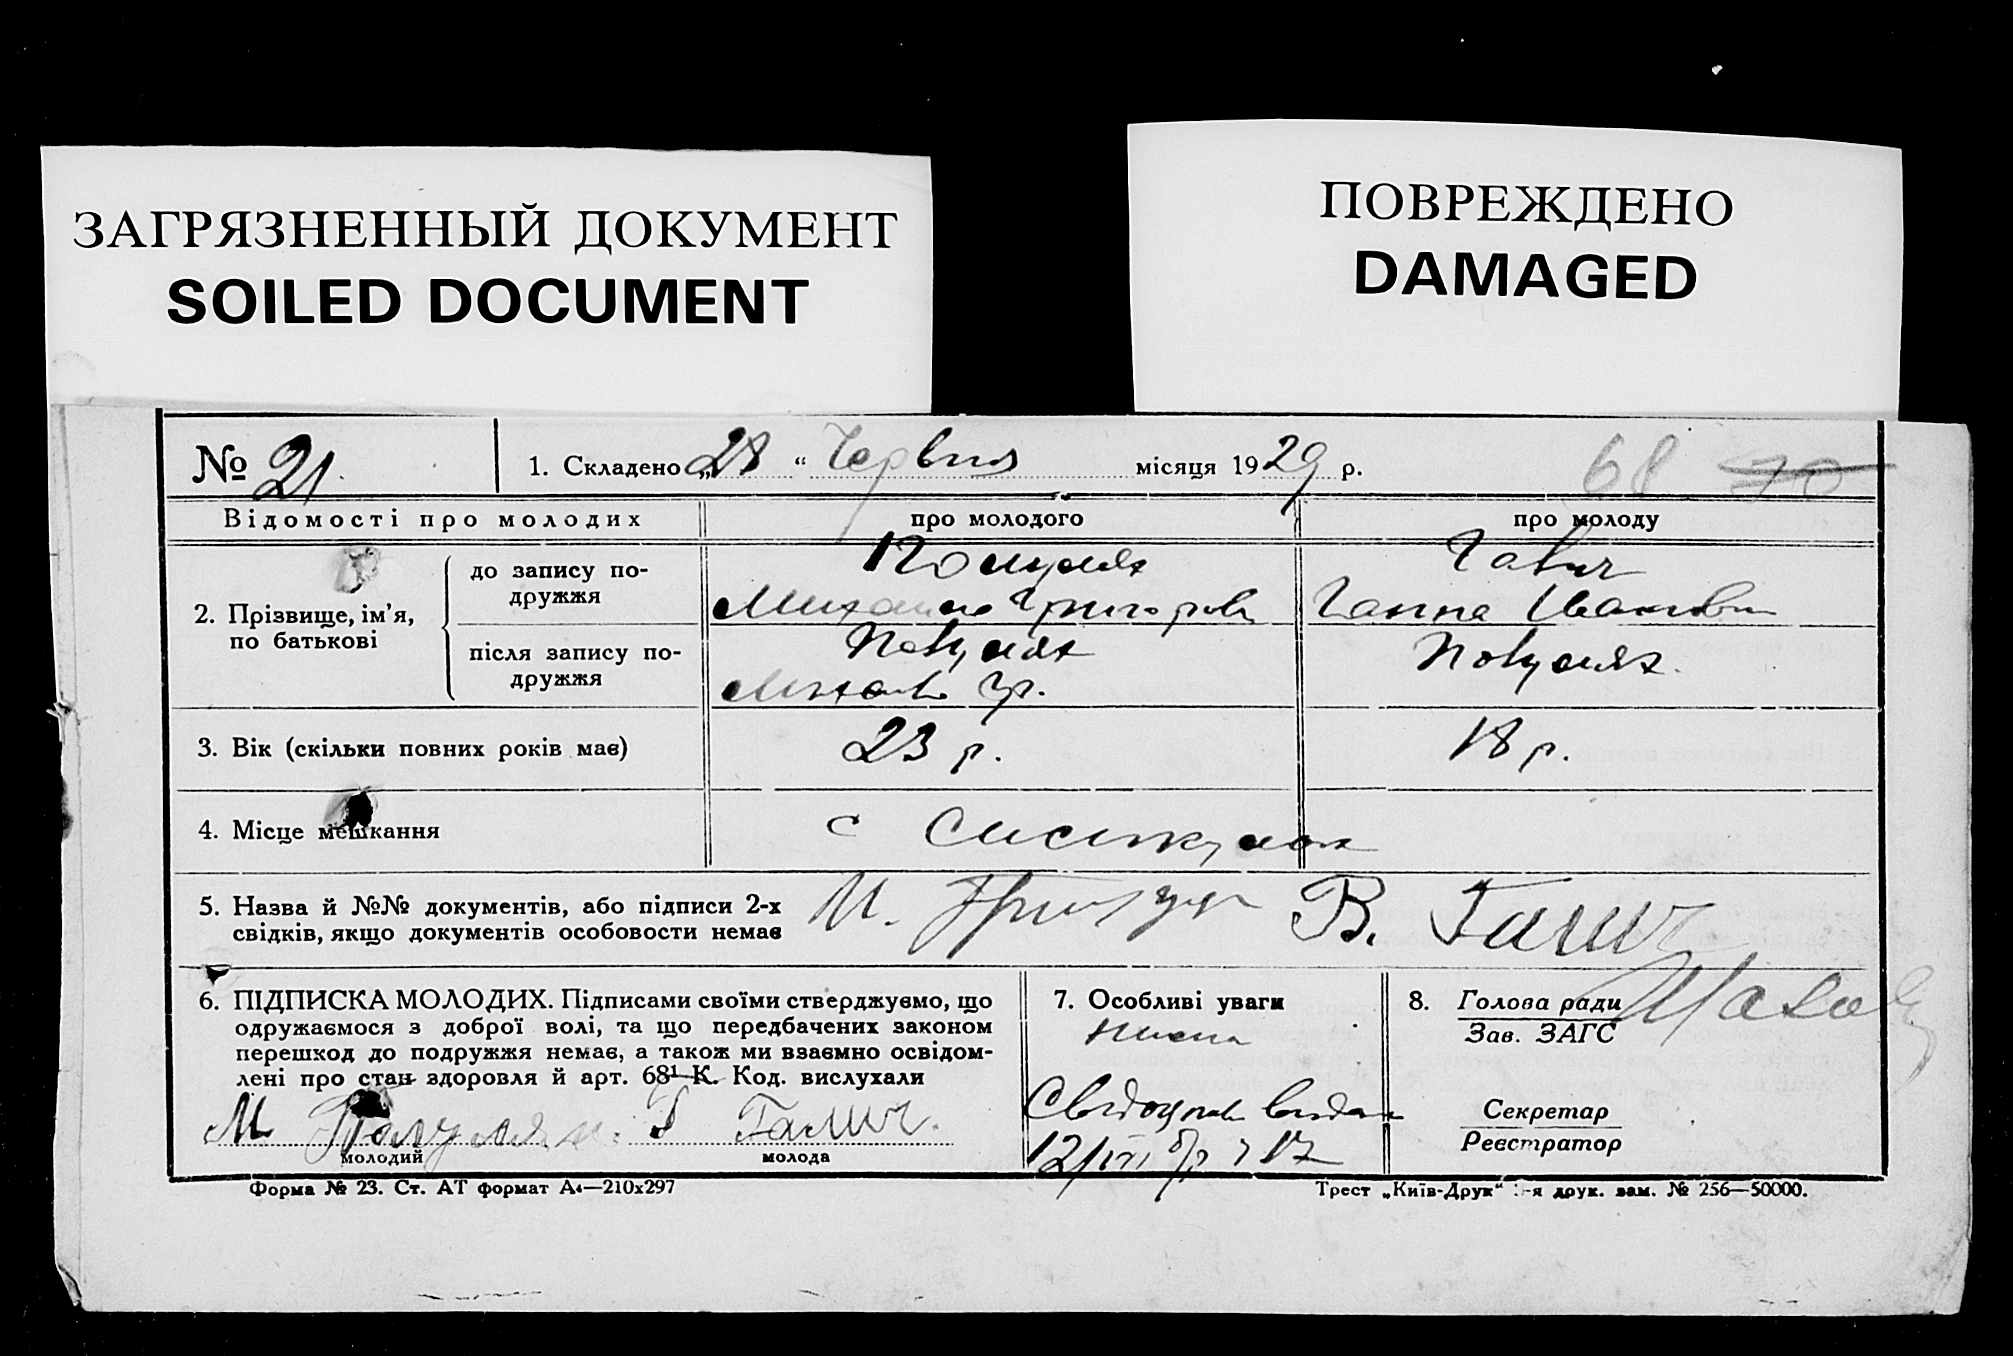 ЗАГРЯЗНЕННЫЙ ДОКУМЕНТ
SOILED DOCUMENT
ПОВРЕЖДЕНО
DAMAGED
№ 21. 1. Складено „28“ Червня місяця 1929 р. 68 70
Відомості про молодих про молодого про молоду
2. Прізвище, ім'я, по батькові
до запису подружжя
Михайло Григоров Ганна Іванівн
після запису подружжя
3. Вік (скільки повних років має) 23 р. 18 р.
4. Місце мешкання с
5. Назва й №№ документів, або підписи 2-х
свідків, якщо документів особовости немає
В. Галич
6. ПІДПИСКА МОЛОДИХ. Підписами своїми стверджуємо, що
одружаємося з доброї волі, та що передбачених законом
перешкод до подружжя немає, а також ми взаємно освідом-
лені про стан здоровля й арт. 68¹ К. Код. вислухали
М Г Галич.
молодий молода
7. Особливі уваги
нема
8. Голова ради
Зав. ЗАГС
Секретар
Реєстратор
Форма № 23. Ст. АТ формат А4—210х297
Трест „Київ-Друк“ друк. зам. № 256—50000.